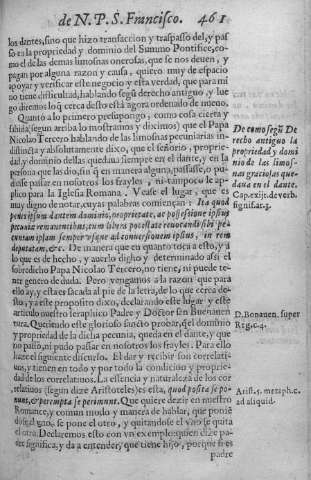 de N. P. S. Francisco. 461
los dantes, sino que hizo transaccion y traspasso del, y pas
so es la propriedad y dominio del Summo Pontifice, co-
mo el de las demas limosnas onerosas, que se nos deuen, y
pagan por alguna razon y causa, quiero muy de espacio
apoyar y verificar este negocio y esta verdad, que para mi
no tiene dificultad, hablando segū derecho antiguo, y lue
go diremos lo q̄ cerca desto està agora ordenado de nueuo.
Quanto a lo primero presupongo, como cosa cierta y
sabida (segun arriba lo mostramos y diximos) que el Papa
Nicolao Tercero hablando de las limosnas pecuniarias in-
distincta y absolutamente dixo, que el señorio, proprie-
dad, y dominio dellas quedaua siempre en el dante, y en la
persona que las dio, sin q̄ en manera alguna, passasse, o pu-
diesse passar en nosotros los frayles, ni tampoco se ap-
plico para la Iglesia Romana. Vease el lugar, que es
muy digno de notar, cuyas palabras comiençan: Ita quod
penes ipsum dantem dominio, proprietate, ac possessione ipsius
pecuniæ remanentibus, cum libera potestate reuocandi sibi pe-
cuniam ipsam semper vsque ad conuersionem ipsius, in rem
deputatam, &c. De manera que en quanto toca a esto, y a
lo que es de hecho, y auerlo dicho y determinado assi el
sobredicho Papa Nicolao Tercero, no tiene, ni puede te-
ner genero de duda. Pero vengamos a la razon que para
ello ay, y esta es sacada al pie de la letra, de lo que cerca de-
sto, y a este proposito dixo, declarando este lugar y este
articulo nuestro seraphico Padre y Doctor san Buenauen
tura. Queriendo este glorioso sancto prouar, q̄ el dominio
y propriedad de la dicha pecunia, queda en el dante, y que
no passò, ni pudo passar en nosotros los frayles. Para ello
haze el siguiente discurso. El dar y recibir son correlati-
uos, y tienen en todo y por todo la condicion y proprie-
dad de los correlatiuos. La essencia y naturaleza de los cor
relatiuos (segun dize Aristoteles) es esta, quod posita se po-
nunt, & perempta se perimunt. Que quiere dezir en nuestro
Romance, y comun modo y manera de hablar, que ponié
dose el vno, se pone el otro, y quitandose el vno se quita
el otro. Declaremos esto con vn exemplo: quien dize pa-
dre significa, y da a entender, que tiene hijo, porque si es
padre
De como segū De
recho antiguo la
propriedad y domi
nio de las limos-
nas graciosas que-
daua en el dante.
Cap. exijt. de verb.
significat. 3.
D. Bonauen. super
Reg. c. 4.
Arist. 5. metaph. c.
ad aliquid.